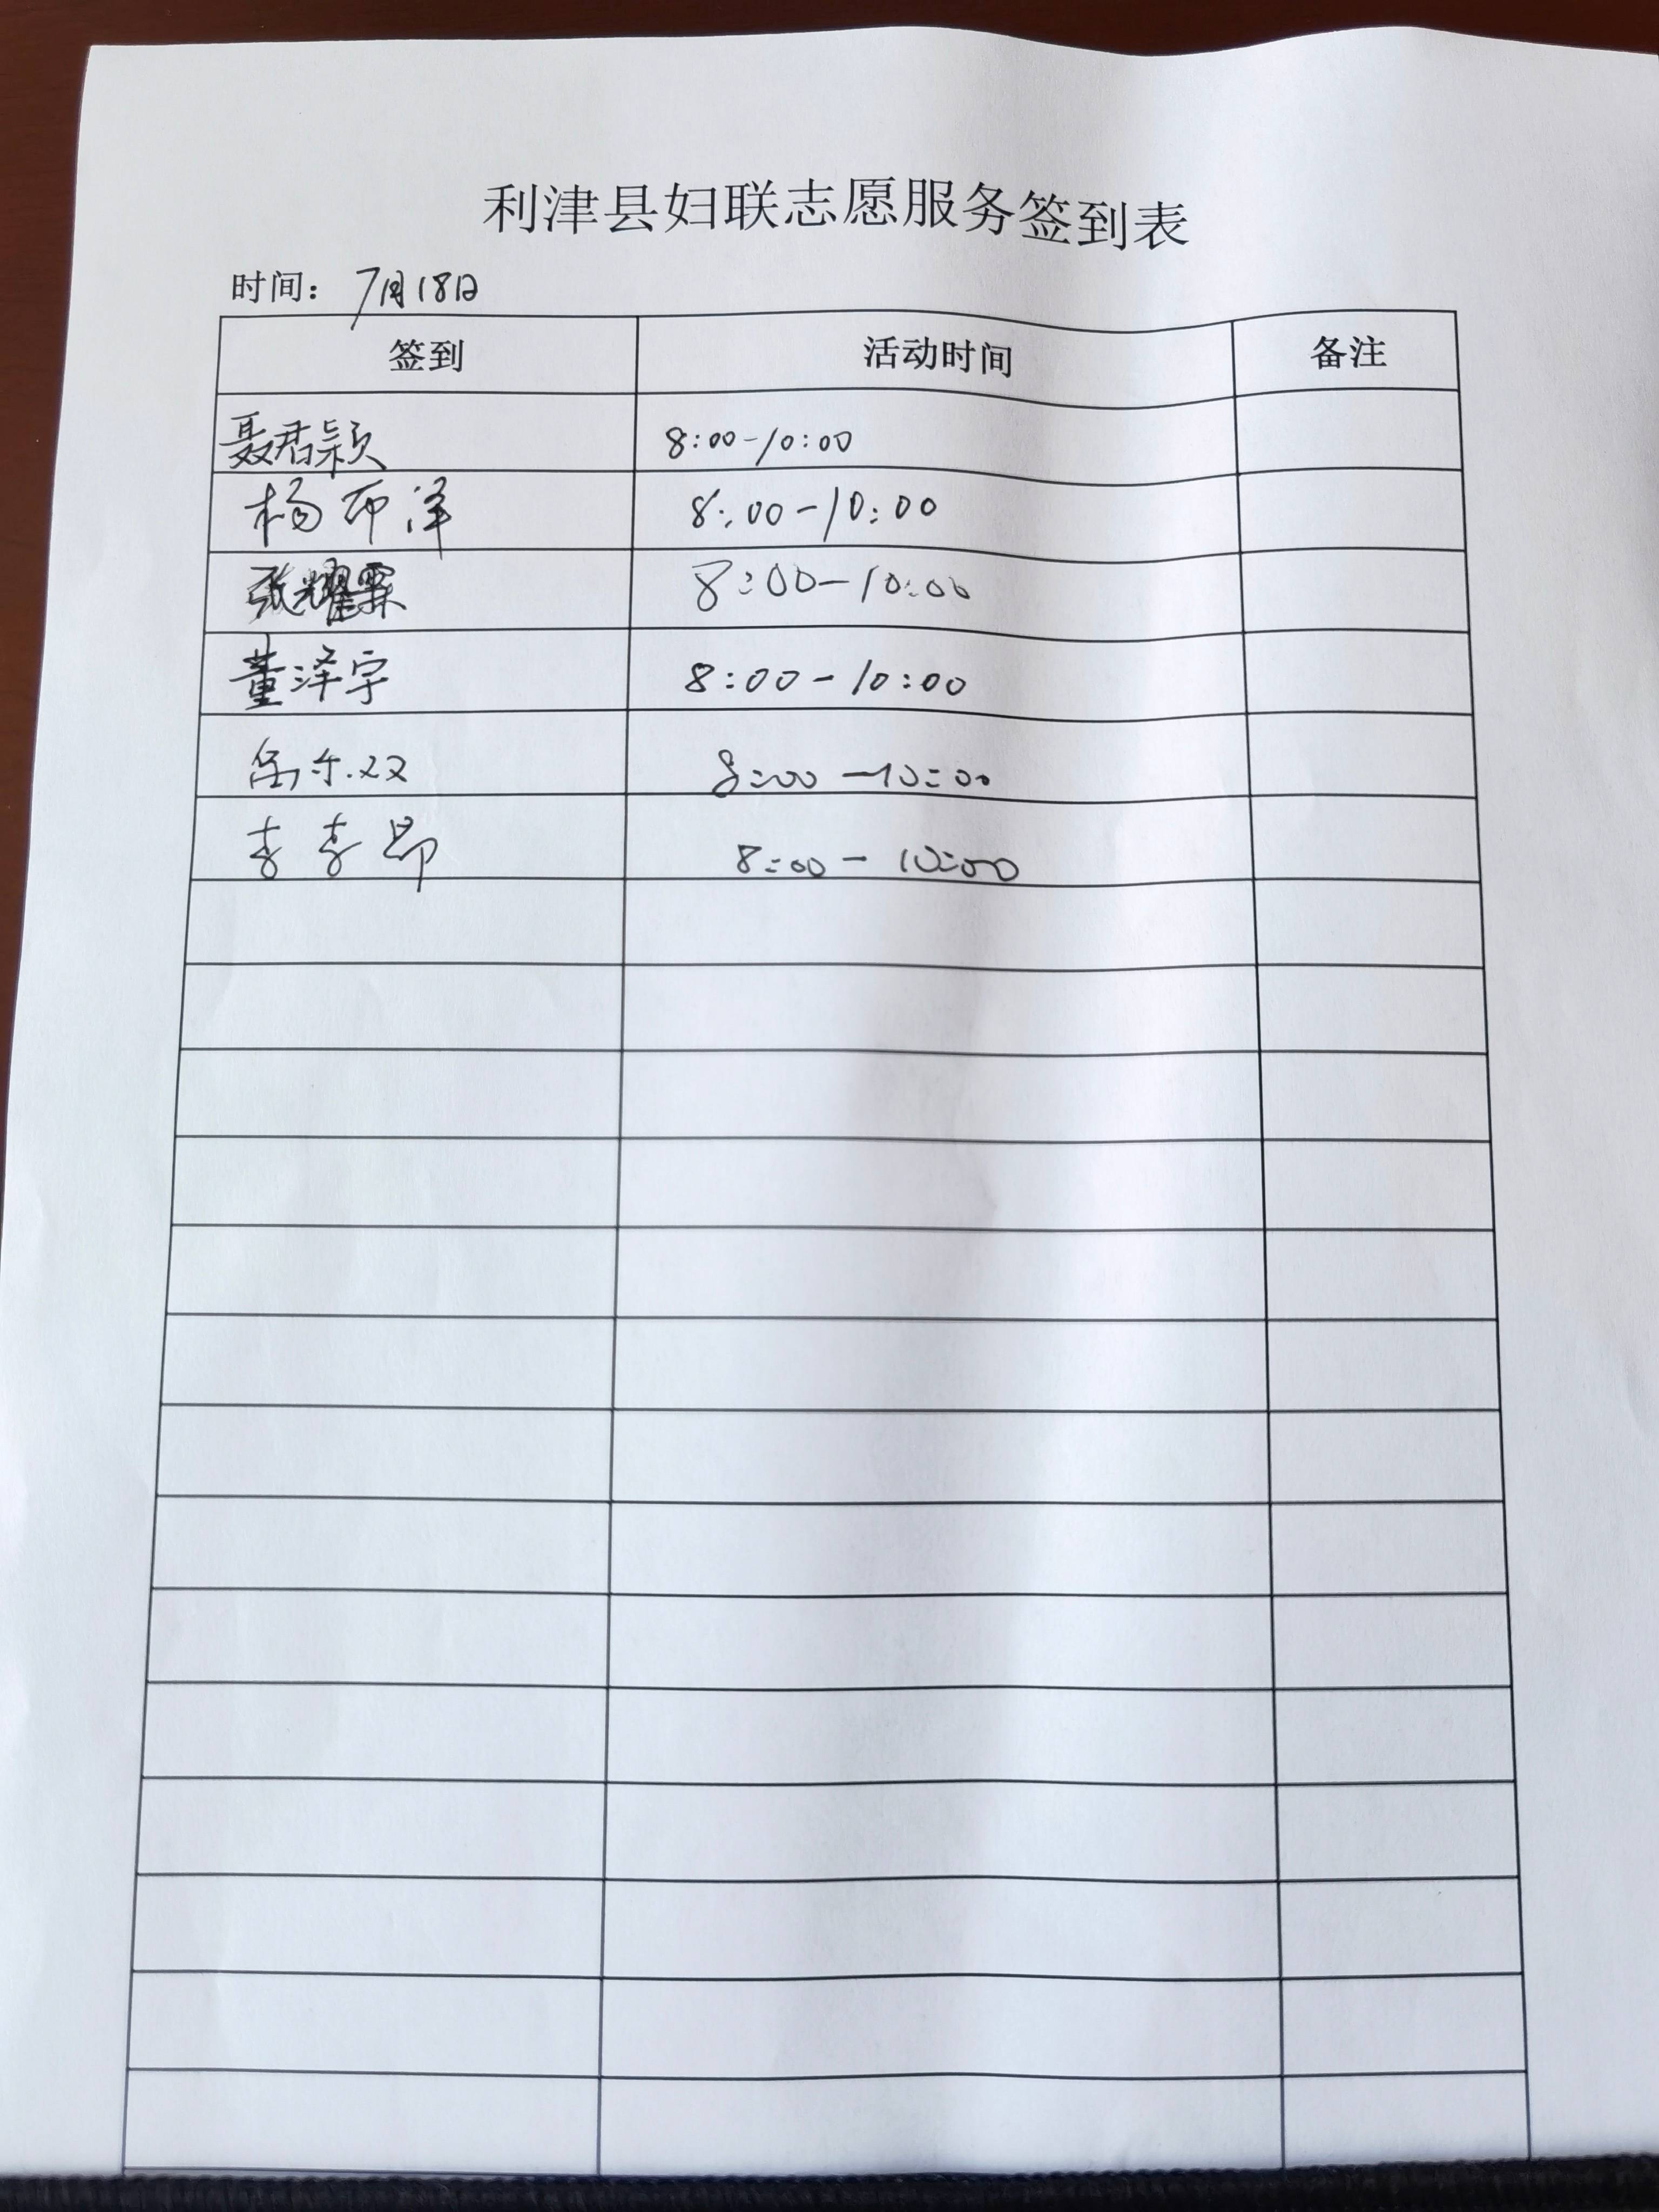 利津县妇联志愿服务签到表
时间: 7月18日
签到 活动时间 备注
聂君颖 8:00-10:00
杨布洋 8:00-10:00
张耀霖 8:00-10:00
董泽宇 8:00-10:00
8:00-10:00
李李昂 8:00-10:00